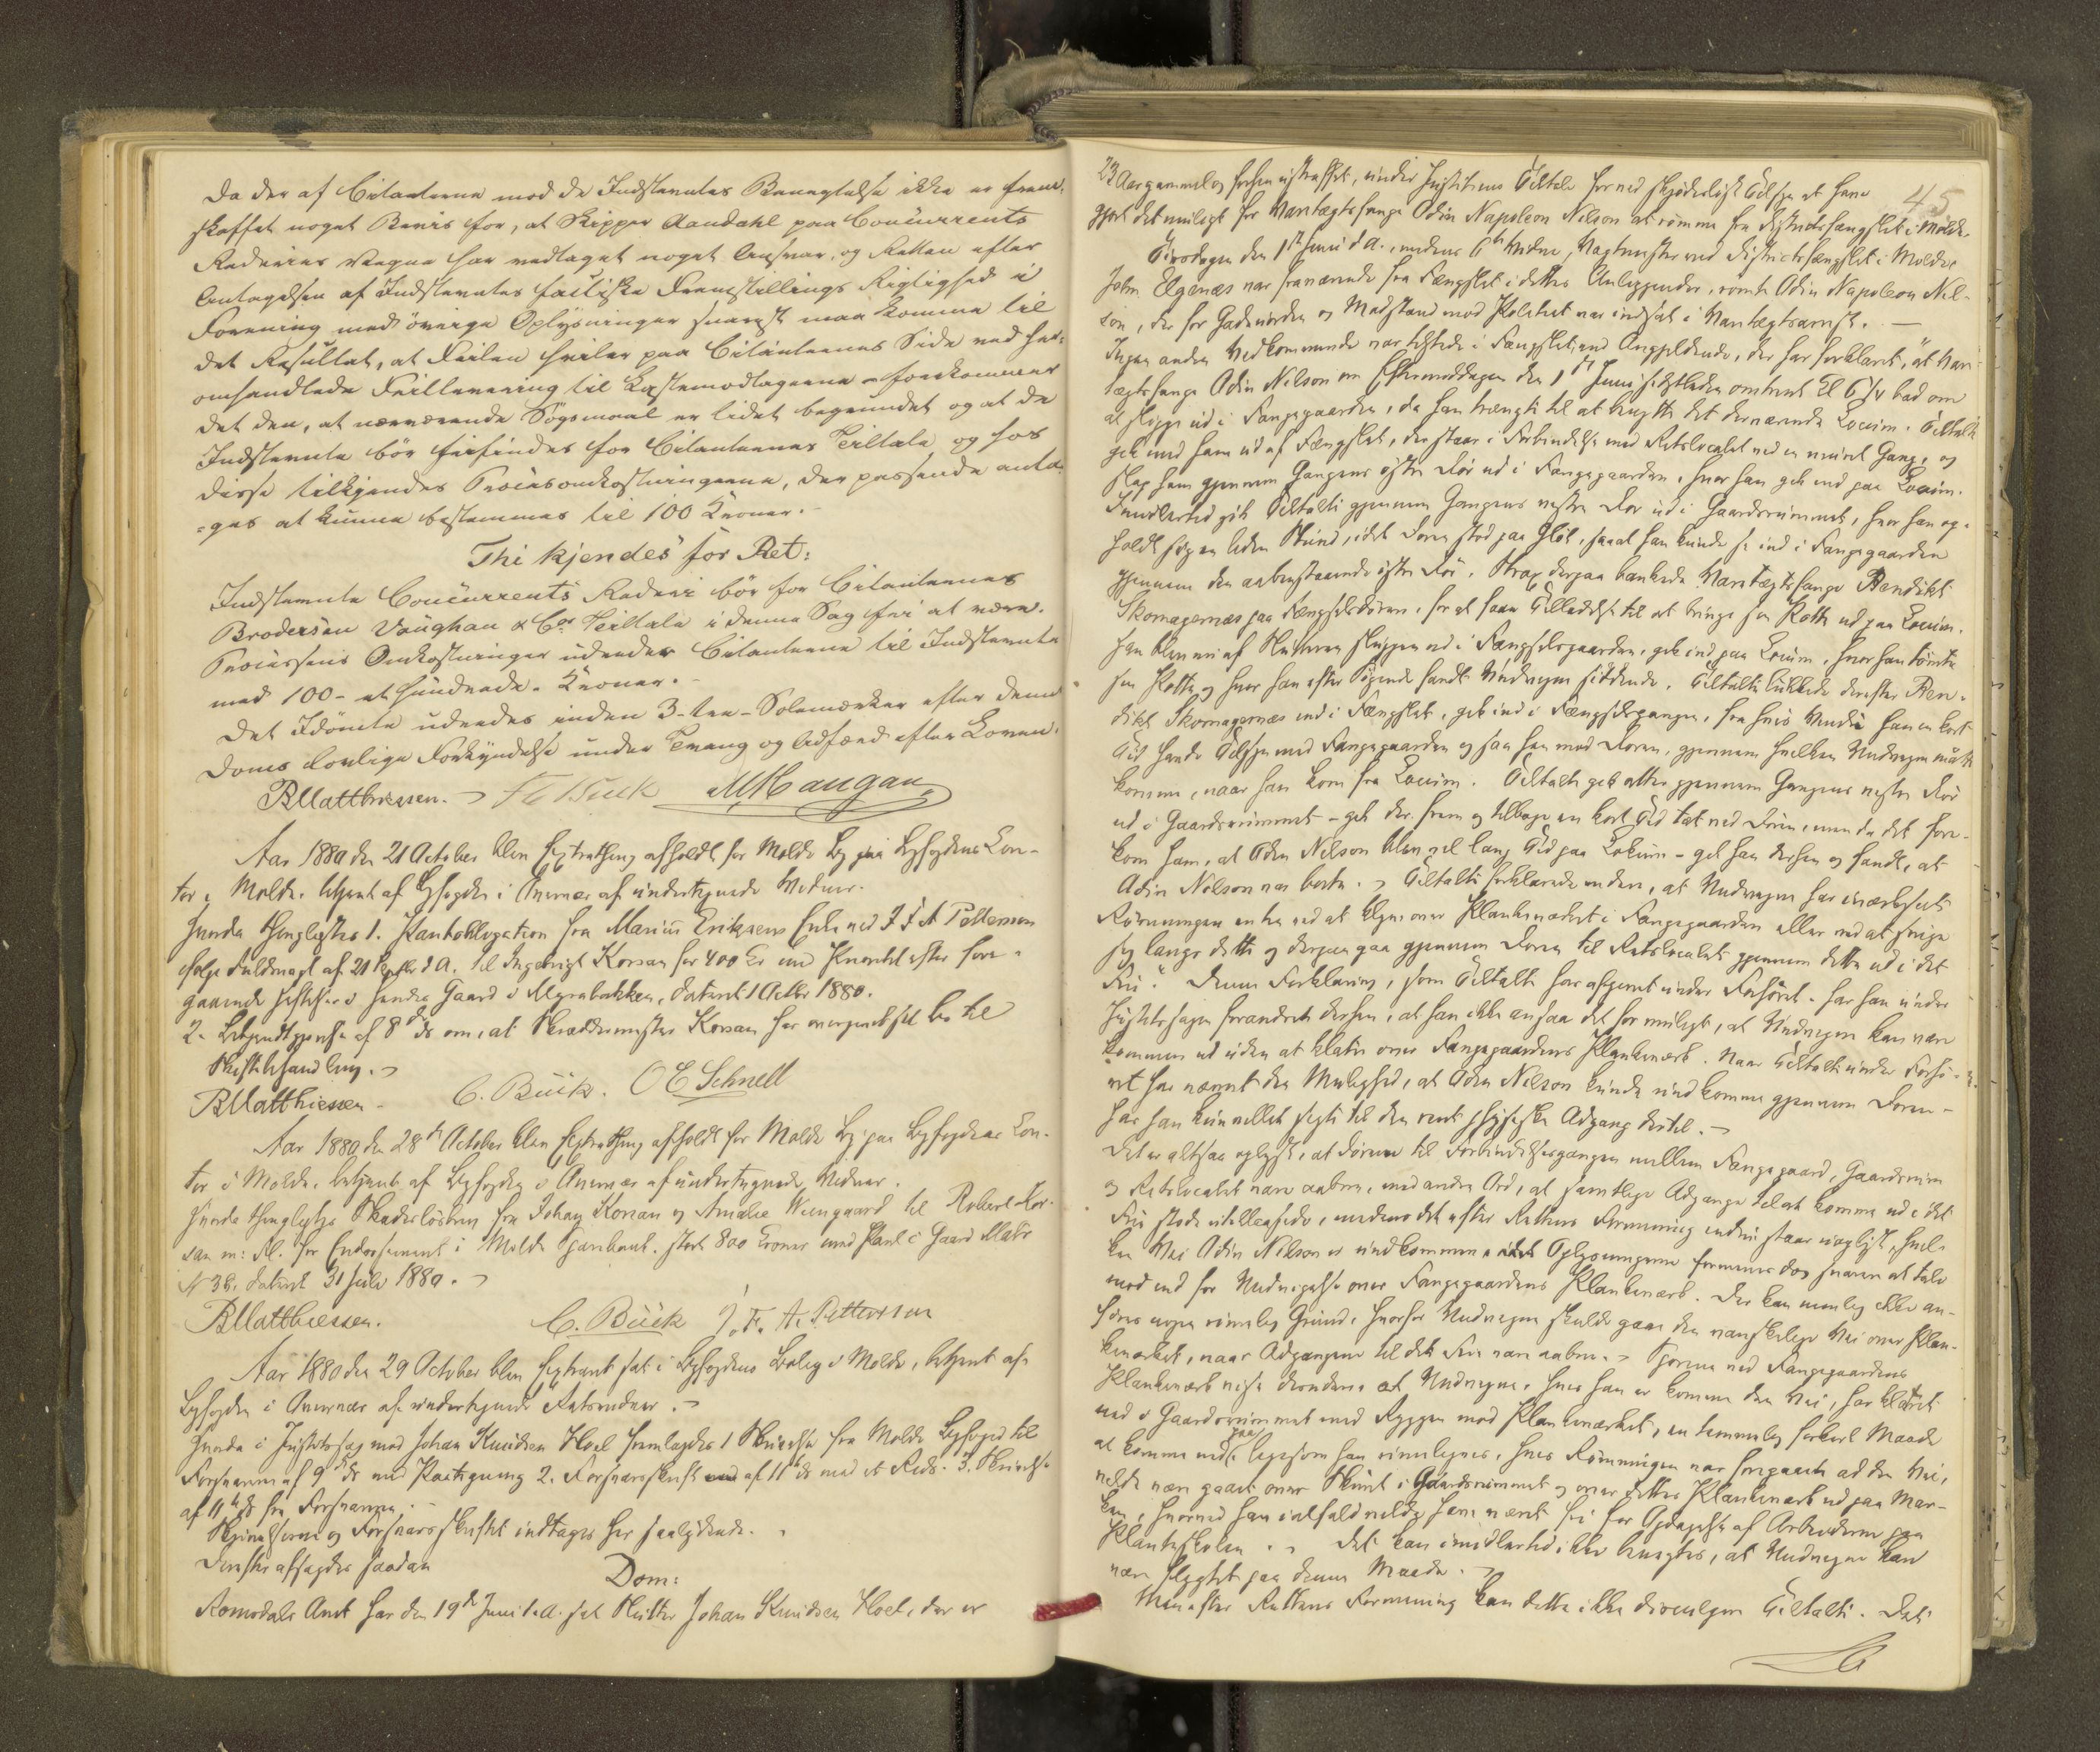 da der af Citanterne mod de Indstevntes Benægtelse ikke er frem-
skaffet noget Bevis for, at Skipper Aandahl paa Concurrents
Rederies Vegne har vedtaget noget Ansvar, og Retten efter
Antagelsen af Indstevntes factiske Fremstillings Rigtighed i
Forening med övrige Oplysninger snarest maa komme til
det Resultat, at Feilen hviler paa Citanternes Side ved her-
omhandlede Feillevering til Lastemodtagerne – forekommer
det den, at nærværende Sögsmaal er lidet begrundet og at de
Indstevnte bör frifindes for Citanternes Tiltale og hos
disse tilkjendes Procesomkostningerne, der passende anta-
-ges at kunne bestemmes til 100 Kroner.-
Thi kjendes for Ret:
Indstevnte Concurrents Rederi bör for Citanternes
Brodersen Vaughan & Co Tiltale i denne Sag fri at være.
Processens Omkostninger udreder Citanterne til Indstevnte
med 100- et hundrede- Kroner.-
Det Idömte udredes inden 3-tre-Solemærker efter denne
Doms lovlige Forkyndelse under Tvang og Adfærd efter Loven.
BMatthiessen. Buck Maugan
Aar 1880 den 21 October blev Extrathing afholdt for Molde By paa Byfogdens Con-
tor i Molde. betjent af Byfogden i Overvær af undertegnede Vidner.
Hvorda thinglystes 1. Pantobligation fra Marius Eriksens Enke ved J F A Pettersen
ifølge Fuldmagt af 21 Septbr d A. til Ingebrigt Korsan for 400 Kr med Pant efter fore-
gaaende Heftelser i hendes Gaard i Myrabakken, dateret 1 Octbr 1880.
2. Bekjendtgjørelse af 8de ds om, at Skræddermester Korsan har overgivet sit Bo til
Skiftebehandling.
BMatthiessen- C. Buck. O E Schnell
Aar 1880 den 28de October blev Extrathing afholdt for Molde By paa Byfogdens Con-
tor i Molde, betjent af Byfogden i Overvær af undertegnede Vidner.
Hvorda thinglystes Skadesløsbrev fra Johan Korsan og Amalie Wiingaard til Robert Kor-
san m: Fl. for Endossement i Molde Sparebank. stort 800 Kroner med Pant i Gaard Matr
N 38. dateret 31 Juli 1880.
BMatthiessen. C. Buck J. F. A. Pettersen
Aar 1880 den 29 October blev Extraret sat i Byfogdens Bolig i Molde, betjent af
Byfogden i Overvær af undertegnede Retsvidner.-
Hvorda i Justitssag mod Johan Knudsen Hoel fremlagdes 1 Skrivelse fra Molde Byfoged til
Forsvareren af 9de ds med Paategning 2. Forsvarsskrift af 11 ds med et Reds. 3. Skrivelse
af 11te ds fra Forsvareren.-
Skrivelserne og Forsvarsskriftet indtages her saalydende.
Derefter afsagdes saadan
Dom:
Romsdals Amt har den 19de Juni d. A. sat Slutter Johan Knudsen Hoel, der er
45
23 Aar gammel og forhen ustraffet, under Justitiens Tiltale for ved skjødesløst Tilsyn at have
gjort det muligt for Varetægtsfange Odin Napoleon Nilson at rømme fra Distriktsfængslet i Molde.
Tirsdagen den 1ste Juni d A., medens 6te Vidne, Vagtmester ved Distriktsfængslet i Molde
John Elgenæs var fraværende fra Fængslet i dettes Anliggender, rømte Odin Napoleon Nil-
son, der for Gadeuorden og Modstand mod Politiet var indsat i Varetægtsarrest.-
Ingen anden Vedkommende var tilstede i Fængslet end Angjeldende, der har forklaret, "at Vare-
tægtsfange Odin Nilson om Eftermiddagen den 1ste Juni sidstleden omtrent Kl 6 bad om
at slippe ud i Fangegaarden, da han trængte til at benytte det derværende Locum. Tiltalte
gik med ham ud af Fængslet, der staar i Forbindelse med Retslocalet ved en muret Gang, og
slap ham gjennem Gangens østre Dør ud i Fangegaarden, hvor han gik ind paa Locum.
Imidlertid gik Tiltalte gjennem Gangens vestre Dør ud i Gaardsrummet, hvor han op-
holdt sig en liden Stund, idet Døren stod paa Gløt, saaat han kunde se ind i Fangegaarden
gjennem den aabenstaaende østre Dør. Strax derpaa bankede Varetægtsfange Bendikt
Skomagernæs paa Fængselsdøren, for at faa Tilladelse til at bringe sin Potte ud paa Locum.
Han blev nu af Slutteren sluppen ud i Fængselsgaarden, gik ind paa Locum, hvor han tømte
sin Potte, og hvor han efter Sigende fandt Undvegne siddende. Tiltalte lukkede derefter Ben-
dikt Skomagernæs ind i Fængslet, gik ind i Fængselsgangen, fra hvis Vindu han en kort
Tid havde Tilsyn med Fangegaarden og saa hen mod Døren, gjennem hvilken Undvegne maatte
komme, naar han kom fra Locum. Tiltalte gik atter gjennem Gangens vestre Dør
ud i Gaardsrummet – gik der frem og tilbage en kort Tid tæt ved Døren, men da det fore-
kom ham, at Odin Nilson blev vel lang Tid paa Lokum – gik han derhen og fandt, at
Odin Nilson var borte. Tiltalte forklarede videre, at Undvegne har iværksat
Rømningen enten ved at klyve over Plankeværket i Fangegaarden eller ved at snige
sig langs dette og derpaa gaa gjennem Døren til Retslocalet gjennem dette ud i det
Fri". Denne Forklaring, som Tiltalte har afgivet under Forhøret – har han under
Justitssagen forandret derhen, at han ikke ansaa det for muligt, at Undvegne kan være
kommen ud uden at klatre over Fangegaardens Plankeværk. Naar Tiltalte under Forhø-
ret har nævnt den Mulighed, at Odin Nilson kunde undkomme gjennem Døren –
har han kun villet sigte til den rent physiske Adgang dertil.-
Det er altsaa oplyst, at Dørene til Forbindelsesgangen mellem Fangegaard, Gaardsrum
og Retslocalet vare aabne, med andre Ord, at samtlige Adgange til at komme ud i det
Fri stode utillaasede, medens det efter Rettens Formening endnu staar uoplyst, hvil-
ken Vei Odin Nilson er undkommen, idet Oplysningerne formenes dog snarere at tale
mod end for Undvigelse over Fangegaardens Plankeværk. Der kan nemlig ikke an-
føres nogen rimelig Grund, hvorfor Undvegne skulde gaa den vanskelige Vei over Plan-
keværket, naar Adgangene til det Fri vare aabne. Sporene ved Fangegaardens
Plankeværk vise desuden at Undvegne, hvis han er kommen den Vei, har klatret
ned i Gaardsrummet med Ryggen mod Plankeværket, en temmelig forkert Maade
at komme ned paa, ligesom han rimeligvis, hvis Rømningen var foregaaet ad den Vei,
vilde være gaaet over Skuret i Gaardsrummet og over dettes Plankeværk ud paa Mar-
ken, hvorved han ialfald vilde have været fri for Opdagelse af Arbeiderne paa
Planteskolen. Det kan imidlertid ikke benegtes, at Undvegne kan
være flygtet paa denne Maade.
Men efter Rettens Formening kan dette ikke disculpere Tiltalte. Det